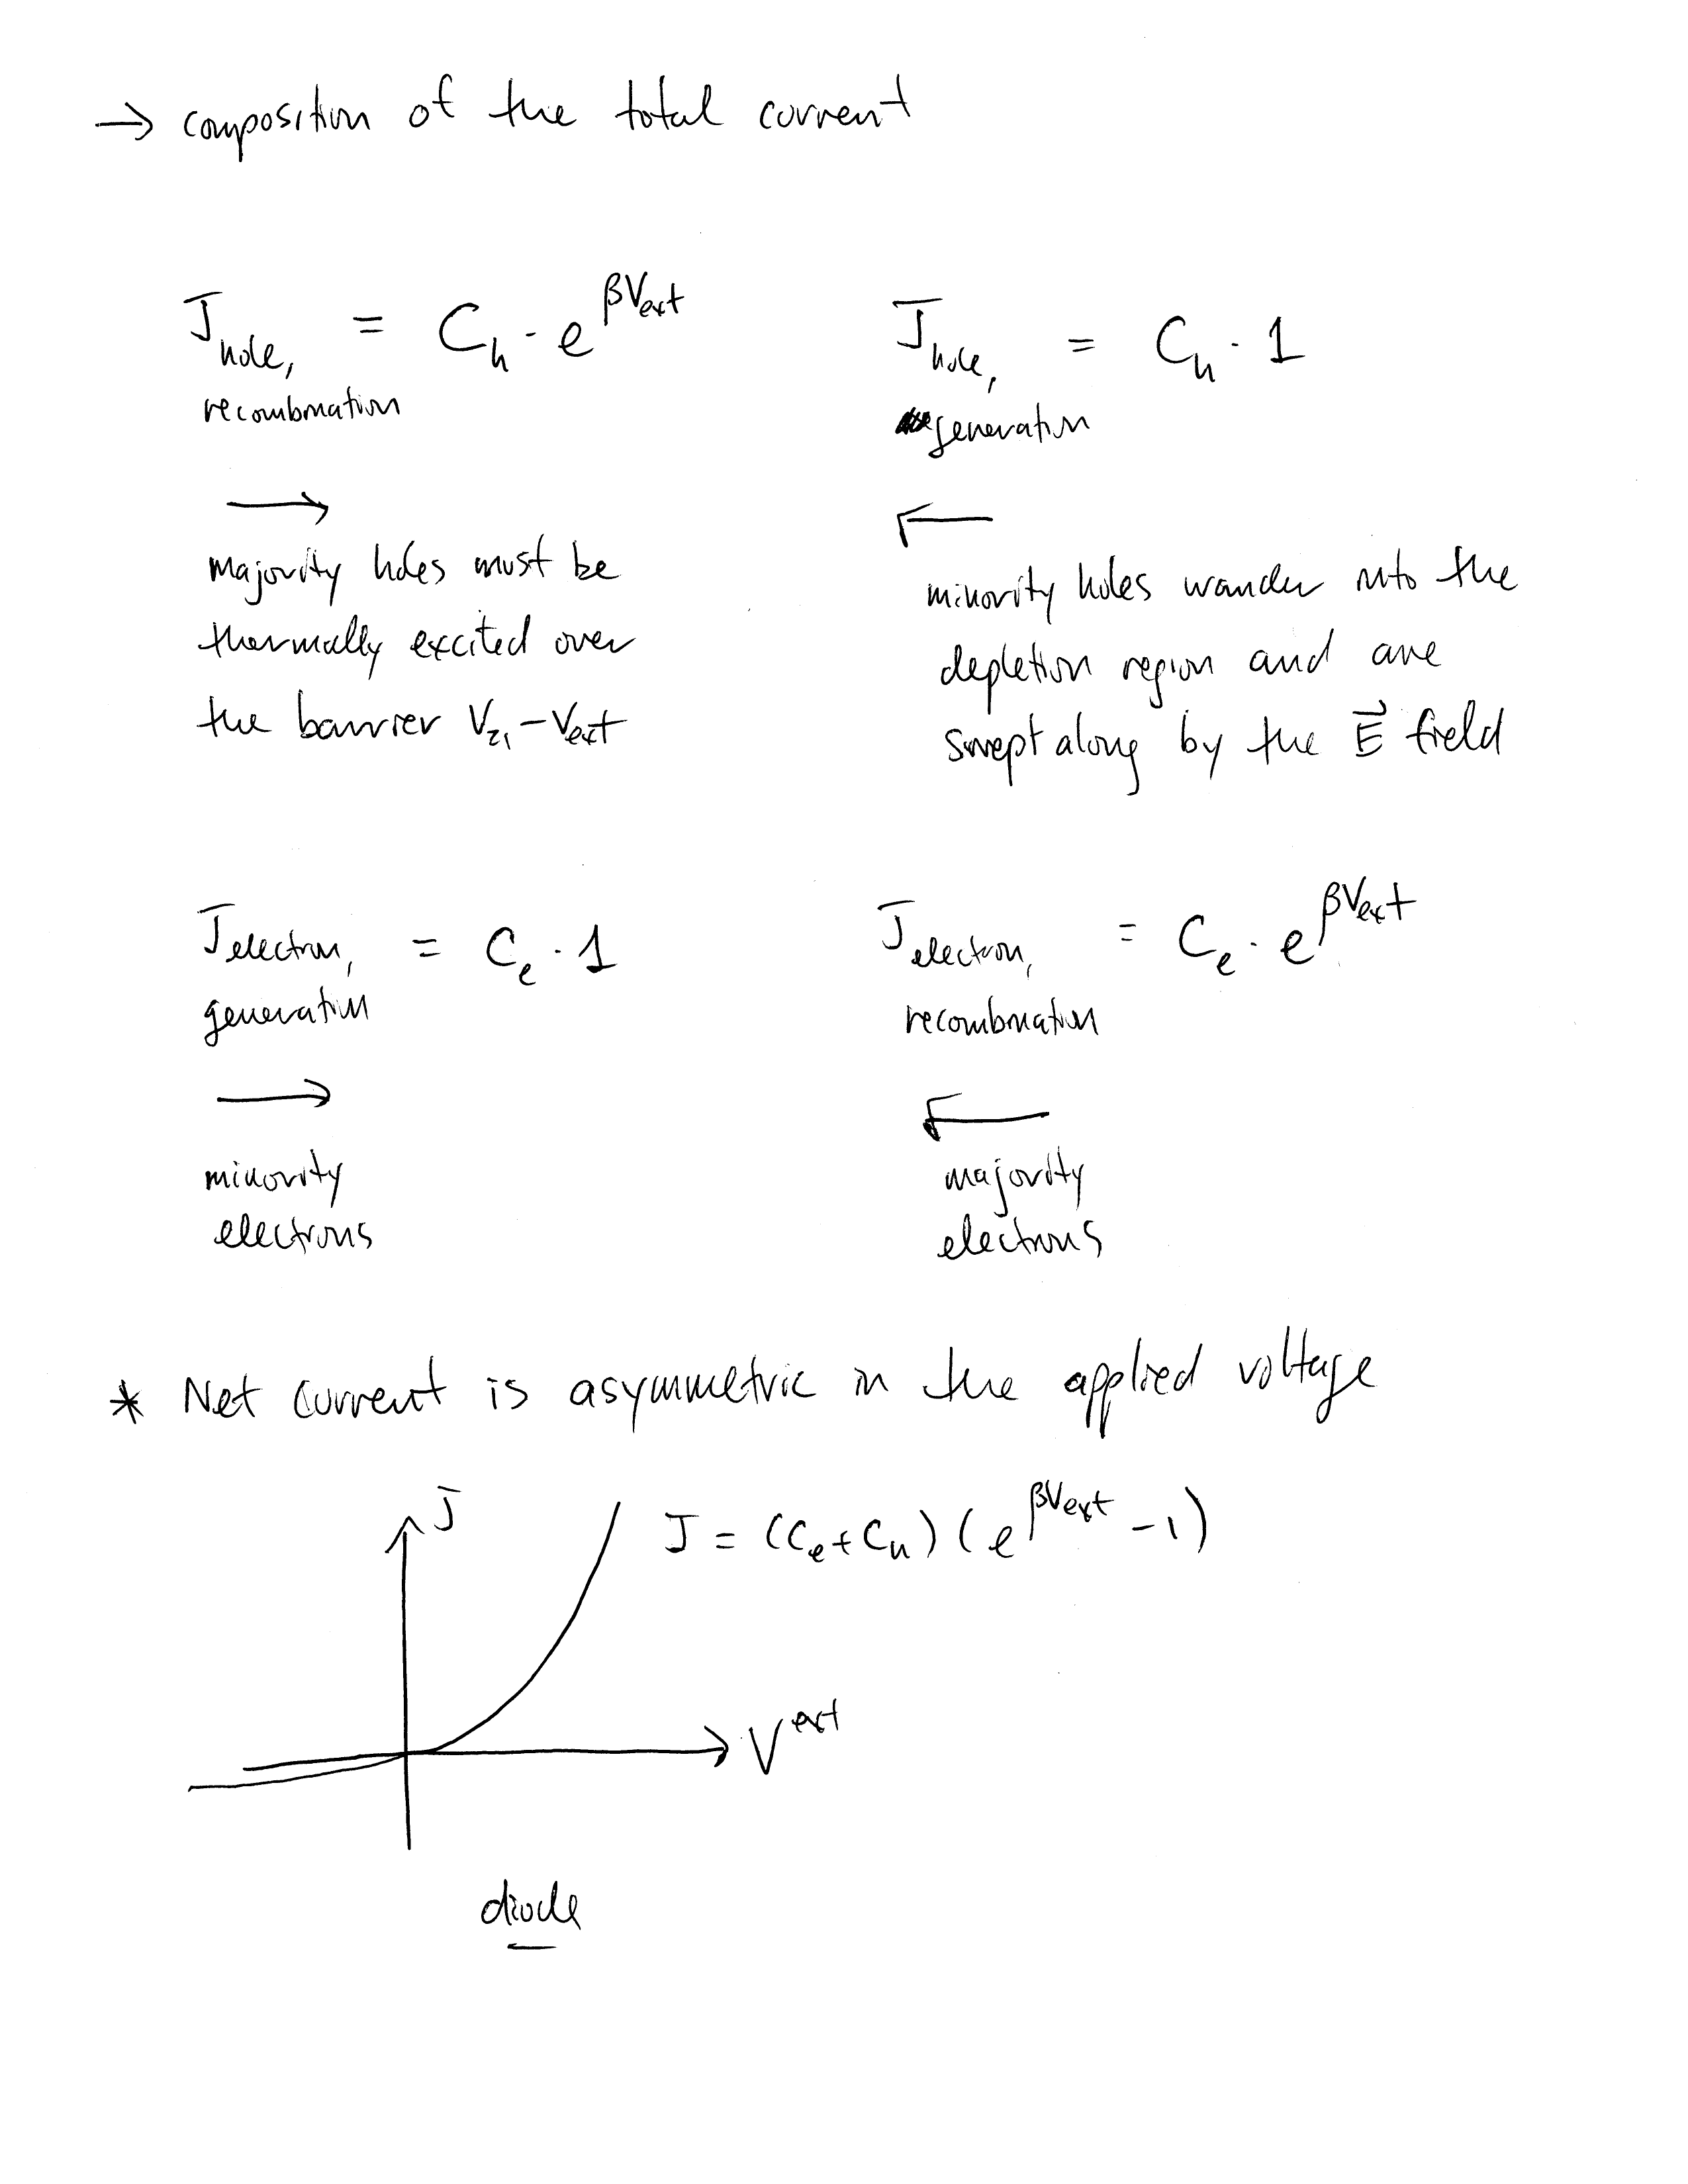 → composition of the total current
J_hole, recombination = C_h · e^{βV_ext}
→
majority holes must be
thermally excited over
the barrier V_21 - V_ext
J_hole, generation = C_h · 1
←
minority holes wander into the
depletion region and are
swept along by the E⃗ field
J_electron, generation = C_e · 1
→
minority
electrons
J_electron, recombination = C_e · e^{βV_ext}
←
majority
electrons
* Net current is asymmetric in the applied voltage
J
J = (C_e + C_h)(e^{βV_ext} - 1)
V^ext
diode